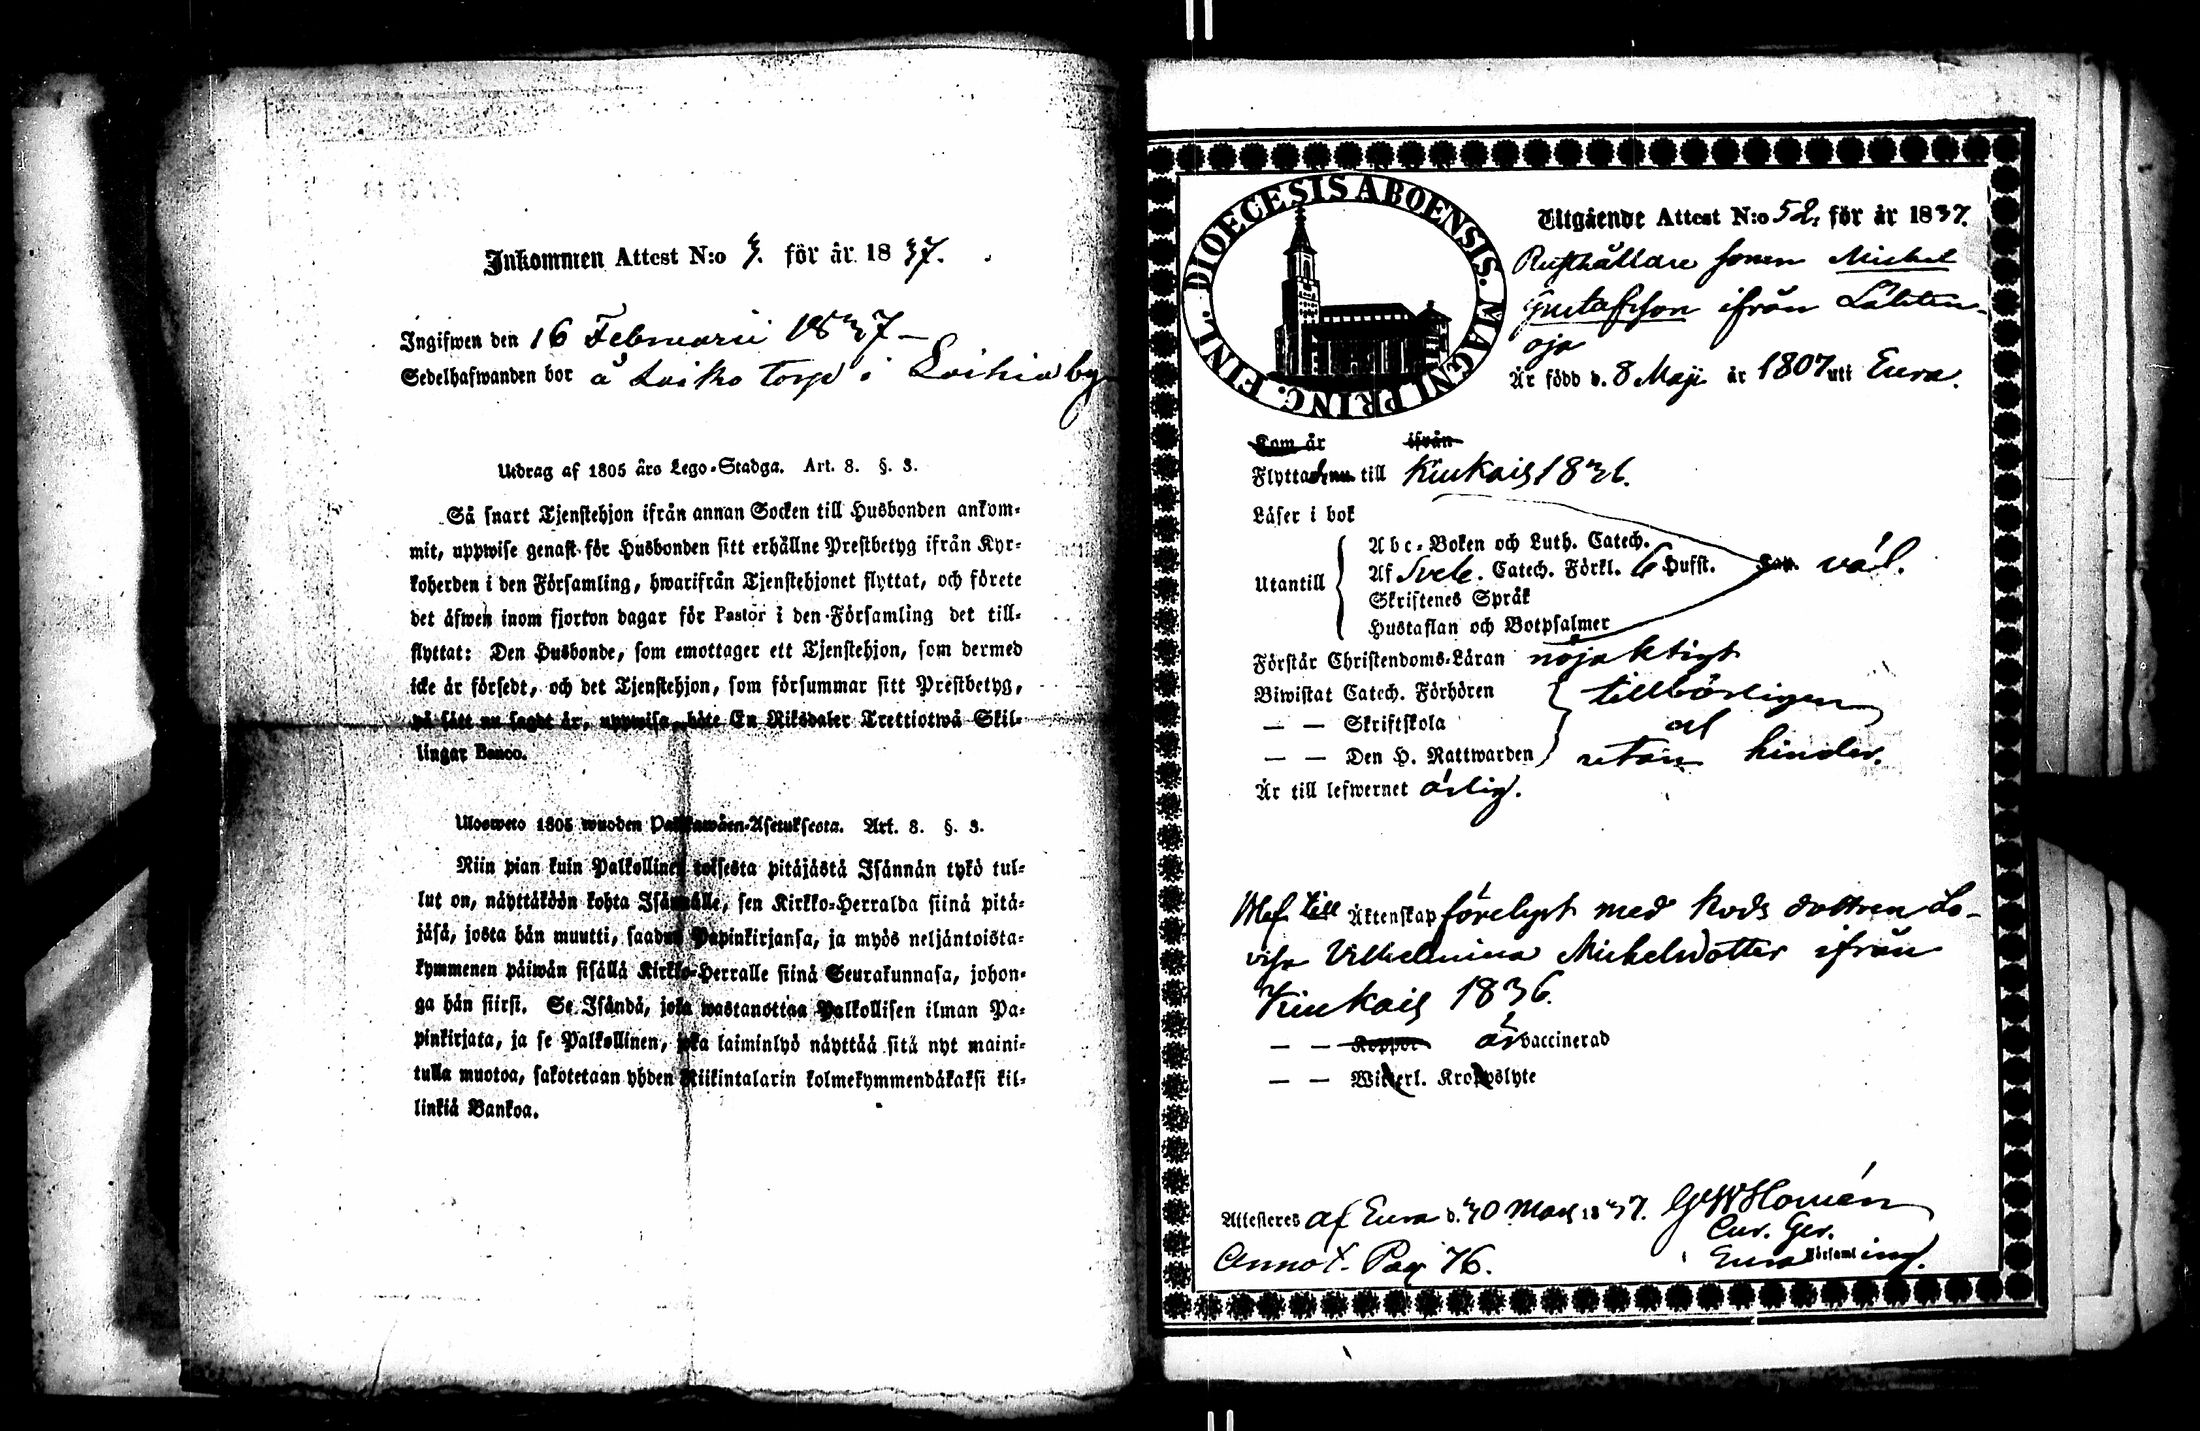 Inkommen Attest N:o 3. för år 1837.
Ingifwen den 16 Februarii 1837 –
Sedelhafwanden bor å Laiko torp i Laihia by
Utdrag af 1805 års Lego-Stadga. Art. 8. §. 3.
Så snart Tjenstehjon ifrån annan Socken till Husbonden ankom-
mit, uppwise genast för Husbonden sitt erhållne Prestbetyg ifrån Kyr-
koherden i den Församling, hwarifrån Tjenstehjonet flyttat, och förete
det äfwen inom fjorton dagar för Pastor i den Församling det till-
flyttat: Den Husbonde, som emottager ett Tjenstehjon, som dermed
icke är försedt, och det Tjenstehjon, som försummar sitt Prestbetyg,
på sätt nu sagdt är, uppwisa, böte En Riksdaler Trettiotwå Skil-
lingar Banco.
Ulosweto 1805 wuoden Palkkawäen-Asetuksesta. Art. 8. §. 3.
Niin pian kuin Palkollinen toisesta pitäjästä Isännän tykö tul-
lut on, näyttäköön kohta Isännälle, sen Kirkko-Herralda siinä pitä-
jäsä, josta hän muutti, saadun Papinkirjansa, ja myös neljäntoista-
kymmenen päiwän sisällä Kirkko-Herralle siinä Seurakunnasa, johon-
ga hän siirsi. Se Isändä, joka wastanottaa Palkollisen ilman Pa-
pinkirjata, ja se Palkollinen, joka laiminlyö näyttää sitä nyt maini-
tulla muotoa, sakotetaan yhden Riikintalarin kolmekymmendäkaksi kil-
linkiä Bankoa.
DIOECESIS ABOENSIS. MAGNI PRINC. FINL.
Utgående Attest N:o 52, för år 1837.
Rusthållare sonen Michel
Gustafsson ifrån Lähten-
oja
Är född d. 8 Maji år 1807 uti Eura.
Kom år ifrån
Flyttade till Kiukais 1836.
Läser i bok
Abc-Boken och Luth. Catech.
Utantill Af Sveb. Catech. Förkl. 6 Hufst. väl.
Skriftenes Språk
Hustaflan och Botpsalmer
Förstår Christendoms-Läran nöjaktigt
Biwistat Catech. Förhören tillbörligen
— — Skriftskola
— — Den H. Nattwarden utan hinder.
Är till lefwernet ärlig.
till Äktenskap förelyst med Kods dottren Lo-
visa Vilhelmina Michelsdotter ifrån
Kiukais 1836.
— — Koppor är vaccinerad
— — Witterl. Kroppslyte
Attesteras af Eura d. 30 Mars 1837. G W Homén
Cur. Ger.
Annot. Pag 76. Eura Församling.